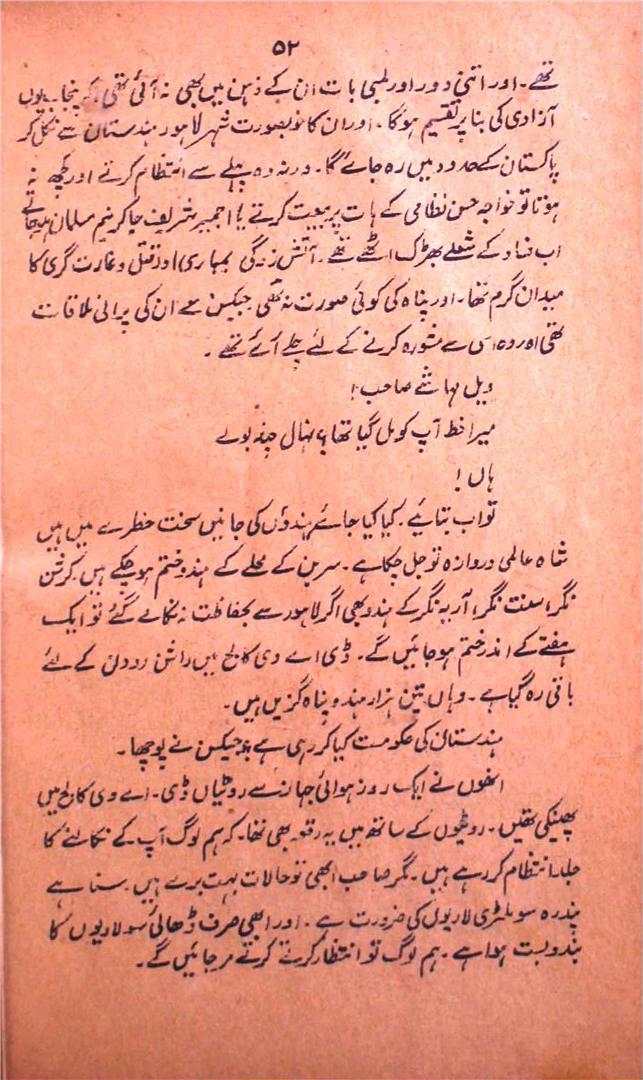 ۵۲
تھے۔ اور اتنی دور اور لمبی بات ان کے ذہن میں بھی نہ آئی تھی، کہ پنجاب یوں
آزادی کی بنا پر تقسیم ہوگا۔ اور ان کا خوبصورت شہر لاہور ہندستان سے نکل کر
پاکستان کے حدود میں رہ جائے گا۔ ورنہ وہ پہلے سے انتظام کرتے اور کچھ نہ
ہوتا تو خواجہ حسن نظامی کے ہات پر بیعت کرتے یا اجمیر شریف جا کر نیم مسلمان ہو جاتے
اب فساد کے شعلے بھڑک اٹھے تھے۔ آتش زدگی بمباری اور قتل و غارت گری کا
میدان گرم تھا۔ اور پناہ کی کوئی صورت نہ تھی جیکسن سے ان کی پرانی ملاقات
تھی اور وہ اسی سے مشورہ کرنے کے لئے چلے آئے تھے۔
ویل ہاشے صاحب!
میرا خط آپ کو مل گیا تھا؟ نہال چند بولے
ہاں!
تو اب بتائیے۔ کیا کیا جائے ہندوؤں کی جانیں سخت خطرے میں ہیں
شاہ عالمی دروازہ تو جل چکا ہے۔ سرین کے محلے کے ہندو ختم ہو چکے ہیں۔ کرشن
نگر، سنت نگر، آریہ نگر کے ہندو بھی اگر لاہور سے بحفاظت نہ نکالے گئے تو ایک
ہفتے کے اندر ختم ہو جائیں گے۔ ڈی اے وی کالج میں راشن دو دن کے لئے
باقی رہ گیا ہے۔ وہاں تین ہزار ہندو پناہ گزیں ہیں۔
ہندستان کی حکومت کیا کر رہی ہے؟ جیکسن نے پوچھا۔
انھوں نے ایک روز ہوائی جہاز سے روٹیاں ڈی۔ اے وی کالج میں
پھینکی تھیں۔ روٹیوں کے ساتھ میں یہ رقعہ بھی تھا۔ کہ ہم لوگ آپ کے نکالنے کا
جلد انتظام کر رہے ہیں۔ مگر صاحب ابھی تو حالات بہت برے ہیں۔ سنا ہے
پندرہ سو ملٹری لاریوں کی ضرورت ہے۔ اور ابھی صرف ڈھائی سو لاریوں کا
بندوبست ہوا ہے۔ ہم لوگ تو انتظار کرتے کرتے مر جائیں گے۔